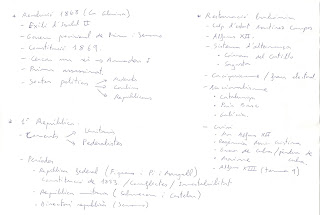 * Revolució 1868 (La Gloriosa)
- Exili d'Isabel II
- Govern provisional de Prim i Serrano
- Constitució 1869.
- Cerca nou rei → Amadeu I
- Prim assassinat
- Sectors polítics → Moderats
→ Carlins
→ Republicans
* 1ª República
- Corrents → Unitaris
→ Federalistes
- Períodes
- República federal (Figueras i Pi i Margall)
Constitució de 1873 / Conflictes / Inestabilitat
- República unitària (Salmeron i Castelar)
- Dictadura república (Serrano)
* Restauració borbònica
- Cop d'estat Martínez Campos
- Alfons XII
- Sistema d'alternança
• Cánovas del Castillo
• Sagasta
- Caciquisme / frau electoral
- Nacionalismes
• Catalunya
• País Basc
• Galícia
- Crisi
• Mor Alfons XII
• Regència Maria Cristina
• Guerra de Cuba / pèrdua de Cuba
• Alfons XIII (tema 9)